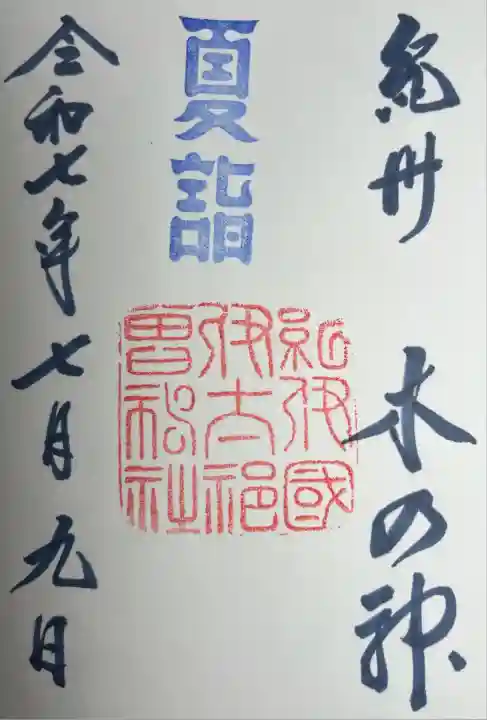 紀州 木の神
夏詣
紀伊國
伊太祁
曽神社
令和七年七月九日